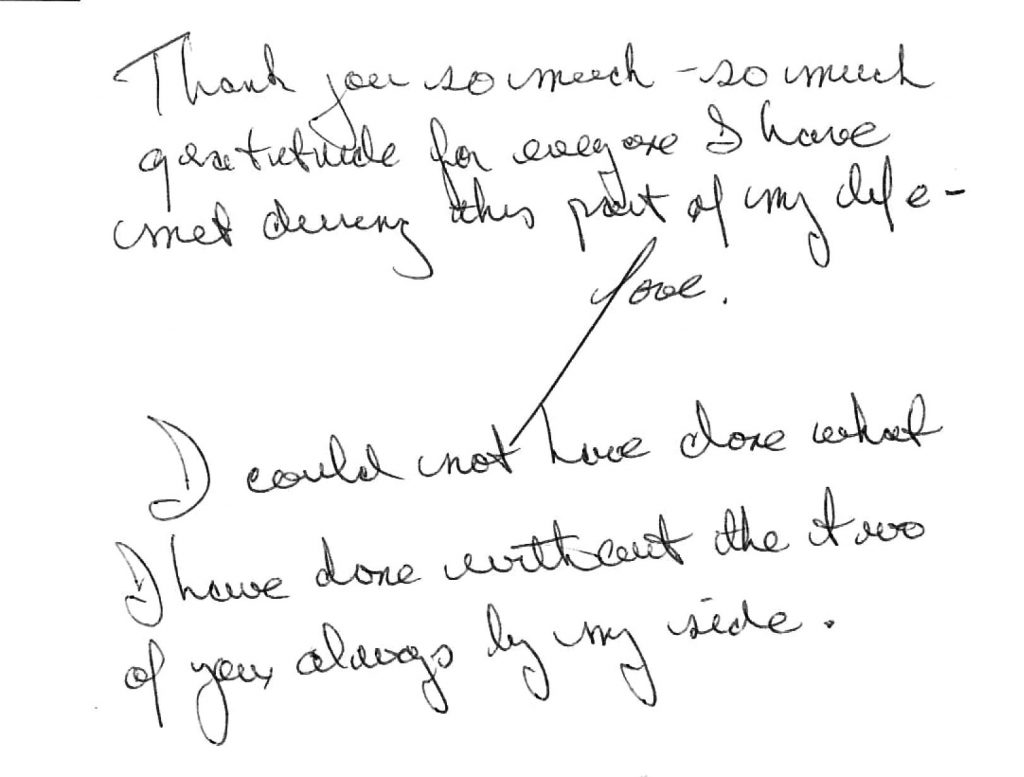 Thank you so much - so much
gratitude for everyone I have
met during this part of my life -
love.
I could not have done what
I have done without the two
of you, always by my side.